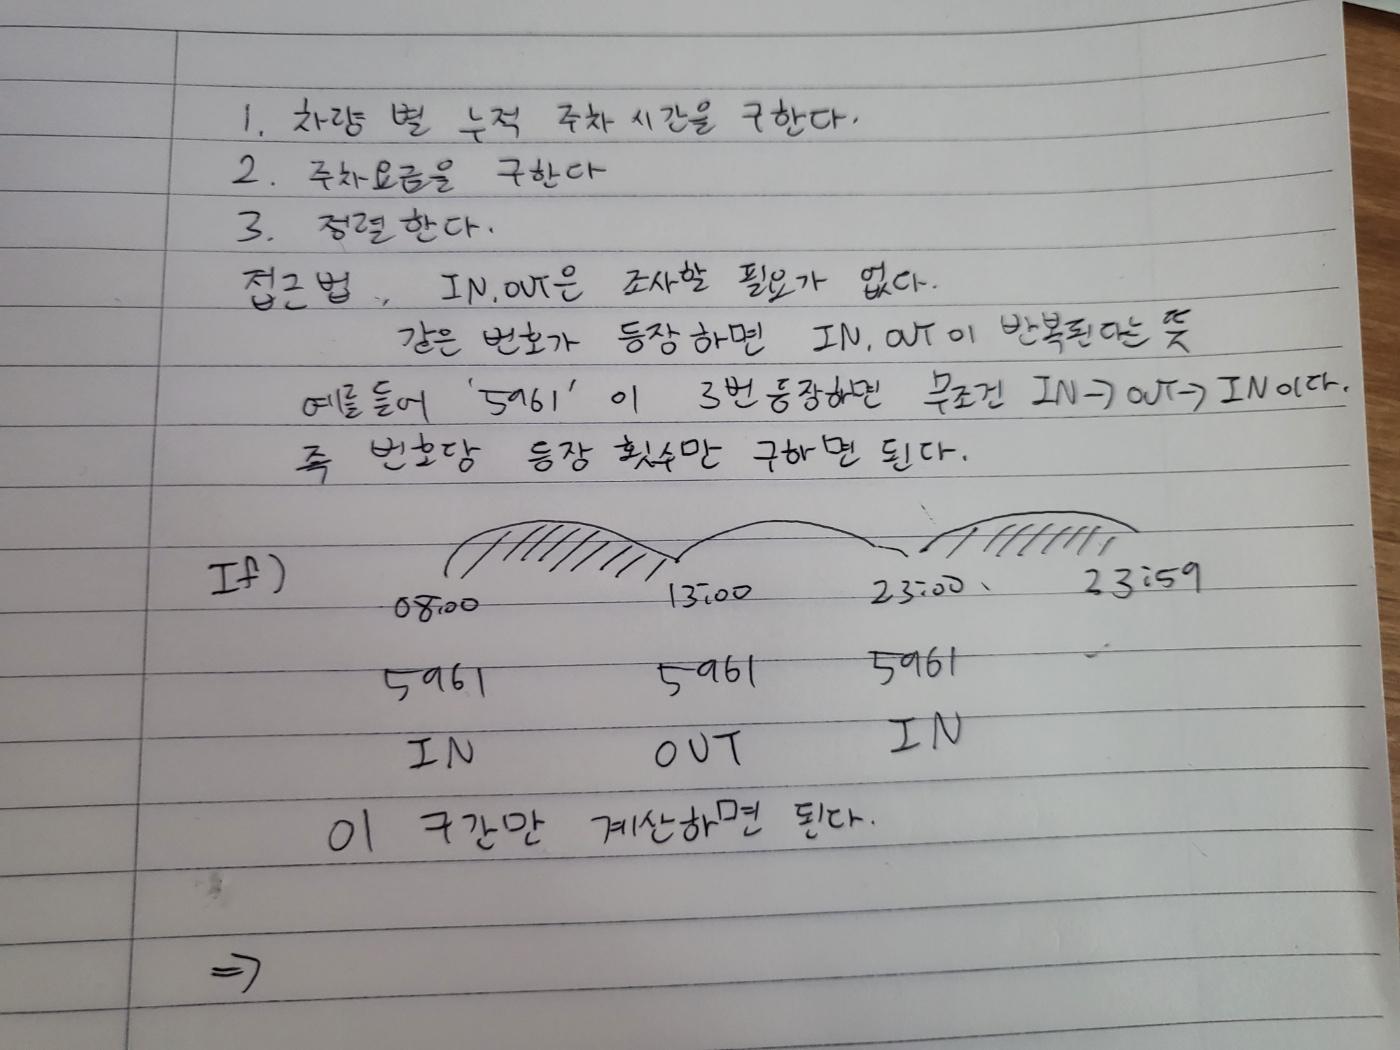 1. 차량 별 누적 주차 시간을 구한다.
2. 주차요금을 구한다
3. 정렬한다.
접근법, IN, OUT은 조사할 필요가 없다.
같은 번호가 등장하면 IN, OUT이 반복된다는 뜻
예를들어 '5961' 이 3번 등장하면 무조건 IN→OUT→IN이다.
즉 번호당 등장 횟수만 구하면 된다.
If) 08:00 13:00 23:00 23:59
5961 5961 5961
IN OUT IN
이 구간만 계산하면 된다.
⇒